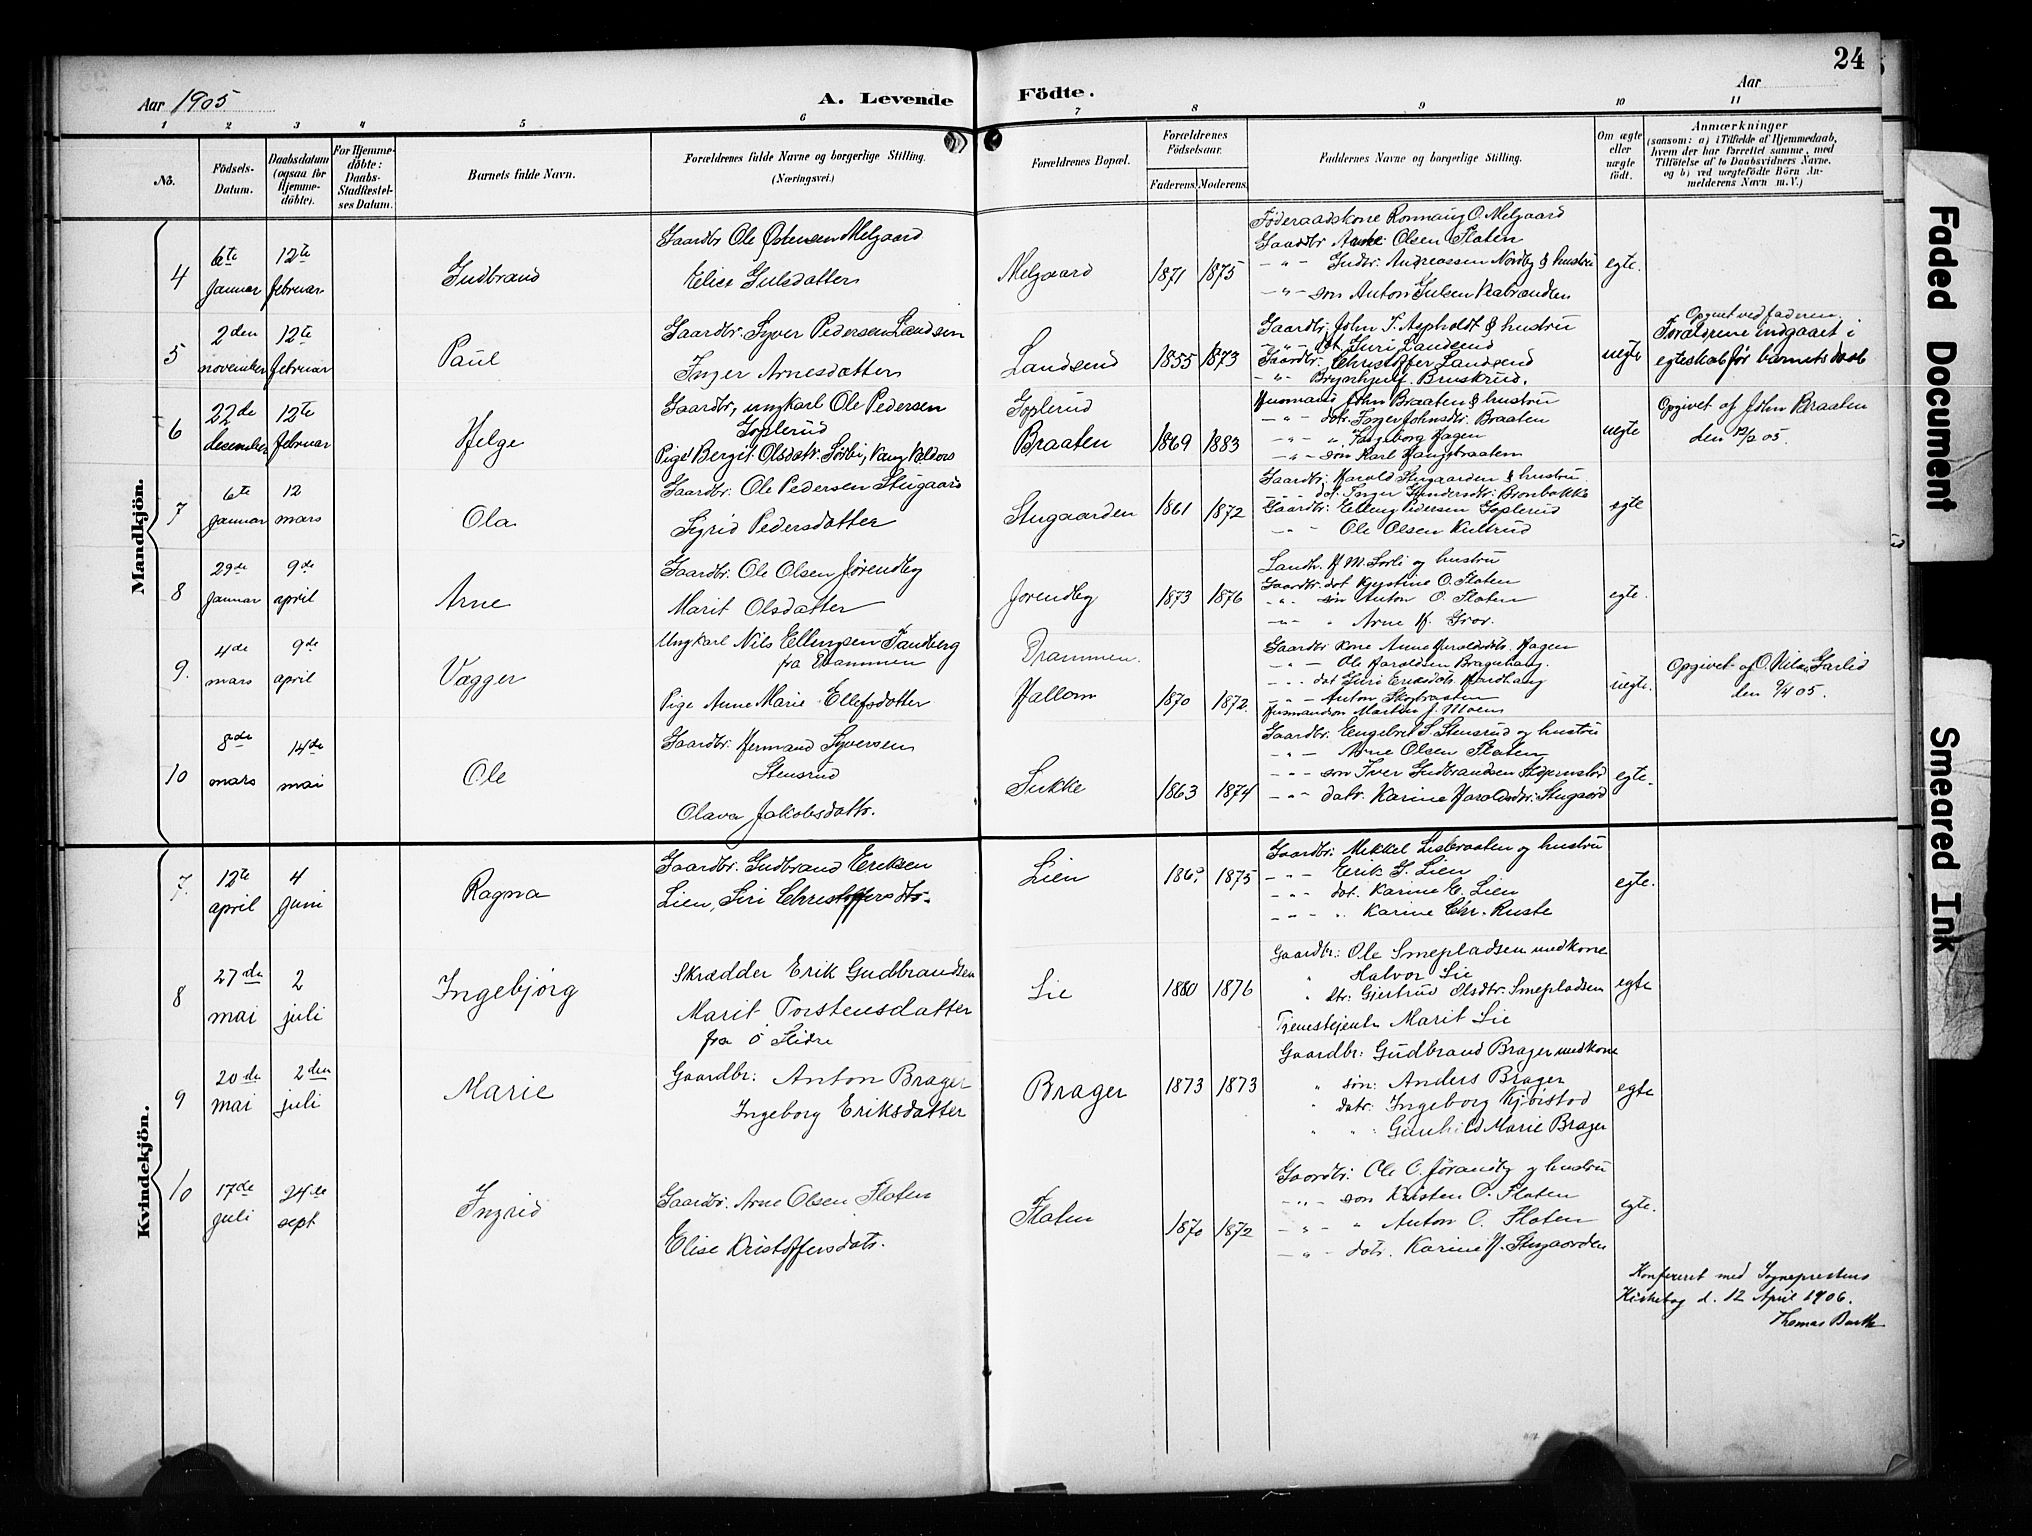 24
Aar 1905
A. Levende Födte.
Aar
1 2 3 4 5 6 7 8 9 10 11
No.
Födsels-Datum.
Daabsdatum (ogsaa for Hjemme-döbte).
For Hjemme-döbte: Daabs-Stadfæstel-ses Datum.
Barnets fulde Navn.
Forældrenes fulde Navne og borgerlige Stilling.
(Næringsvei.)
Forældrenes Bopæl.
Forældrenes Födselsaar.
Faderens. Moderens.
Faddernes Navne og borgerlige Stilling.
Om ægte eller uægte födt.
Anmærkninger
(saasom: a) i Tilfælde af Hjemmedaab,
hvem der har forrettet samme, med
Tilföielse af to Daabsvidners Navne.
og b) ved uægtefödte Börn An-
melderens Navn m. V.)
Mandkjön.
4
6te Januar
12te februar
Gudbrand
Gaardbr Ole Østensen Melgaard
Elise Gulsdatter
Melgaard
1871 1875
Föderaadskone Ronnaug O. Melgaard
Gaardbr Arne Olsen Flaten
-"- Gudbr. Andreassen Nordby & hustru
-"- son Anton Gulsen
egte.
5
2den november
12te februar
Paul
Gaardbr. Syver Pedersen Landsen
Inger Arnesdatter
Landsend
1855 1873
Gaardbr. John T. Aspholdt & hustru
-"- dt. Guri Landsend
Gaardbr. Christoffer Landsend
-"- Brynhjulf Bruskrud.
uegte
Opgivet ved faderen.
Forældrene indgaaet i
egteskab før barnets daab
6
22de desember
12te februar
Helge
Gaardbr, ungkarl Ole Pedersen
Goplerud
Pige Bergit Olsdatr. Sørbi, Vang Valdres
Goplerud
Braaten
1869 1883
Husmand John Braaten & hustru
-"- datr. Inger Johnsdtr. Braaten
-"- " Ingeborg Hagen
-"- son Karl Haugsbraaten
uegte
Opgivet af John Braaten
den 12/2 05.
7
6te Januar
12 mars
Ola
Gaardbr. Ole Pedersen Stugaard
Sigrid Pedersdatter
Stugaarden
1861 1872
Gaardbr. Harald Stugaarden & hustru
-"- dat. Inger Gundersdtr. Bronbakke
Gaardbr. Elling Pedersen Goplerud
-"- Ole Olsen Kulsrud
egte
8
29de Januar
9de april
Arne
Gaardbr. Ole Olsen Jørendby
Marit Olsdatter
Jorendby
1873 1876
Landh. H. M. Sorli og hustru
Gaardbr. dat Kjerstine O. Flaten
-"- søn Anton O. Flaten
-"- " Arne H. Gror.
egte.
9.
4de mars
9de april
Vagger
Ungkarl Nils Ellingsen Tandberg
fra Drammen
Pige Anne Marie Ellefsdatter
Drammen.
Hallom
1870 1872.
Gaardbr kone Anne Haroldsdt. Hagen
-"- Ole Haroldsen Bragerhaug.
-"- dat Guri Eriksdatr. Hardhaug
-"- Anton Skotbraaten
Husmandson Martin J. Moen
uegte.
Opgivet af O. Nils. Garlid
den 9/4 05.
10
8de mars
14de mai
Ole
Gaardbr. Hermand Syversen
Stensrud
Olava Jakobsdattr.
Sukke
1863 1874
Gaardbr. Engebret S. Stensrud og hustru
-"- Arne Olsen Flaten
-"- son Iver Gudbrandsen
-"- datr. Karine Haroldsdtr. Stugaard
egte.
Kvindekjön.
7.
12te april
4 Juni
Ragna
Gaardbr. Gudbrand Eriksen
Lien, Siri Christoffersdtr.
Lien
1875
Gaardbr. Mikkel Lisbraaten og hustru
-"- Erik G. Lien
-"- dat. Karine E. Lien
-"- " Karine Chr. Ruste
egte.
8
27de mai
2 juli
Ingebjørg
Skrædder Erik Gudbrandsen
Marit Torstensdatter
fra Ø Slidre
Lie
1880 1876
Gaardbr: Ole Smepladsen med kone
" Halvor Lie
" dtr: Gjertrud Olsdtr. Smepladsen
Tjenestejente Marit Lie
egte
9
20de mai
2den juli
Marie
Gaardbr: Anton Brager
Ingeborg Eriksdatter
Brager
1873 1873
Gaardbr: Gudbrand Brager med kone
" søn: Anders Brager
" datr: Ingeborg Kjørstad
" " Gunhild Marie Brager
egte
10
17de juli
24de sept
Ingrid
Gaardbr. Arne Olsen Flaten
Elise Kristoffersdatr.
Flaten
1870 1872
Gaardbr: Ole O. Jørandby og hustru
-"- son Kristen O. Flaten
-"- " Anton O. Flaten
-"- datr Karine H. Stugaarden
egte.
Konfereret med Sogneprestens
Kirkebog d. 12 April 1906.
Thomas Barth
Faded Document
Smeared Ink